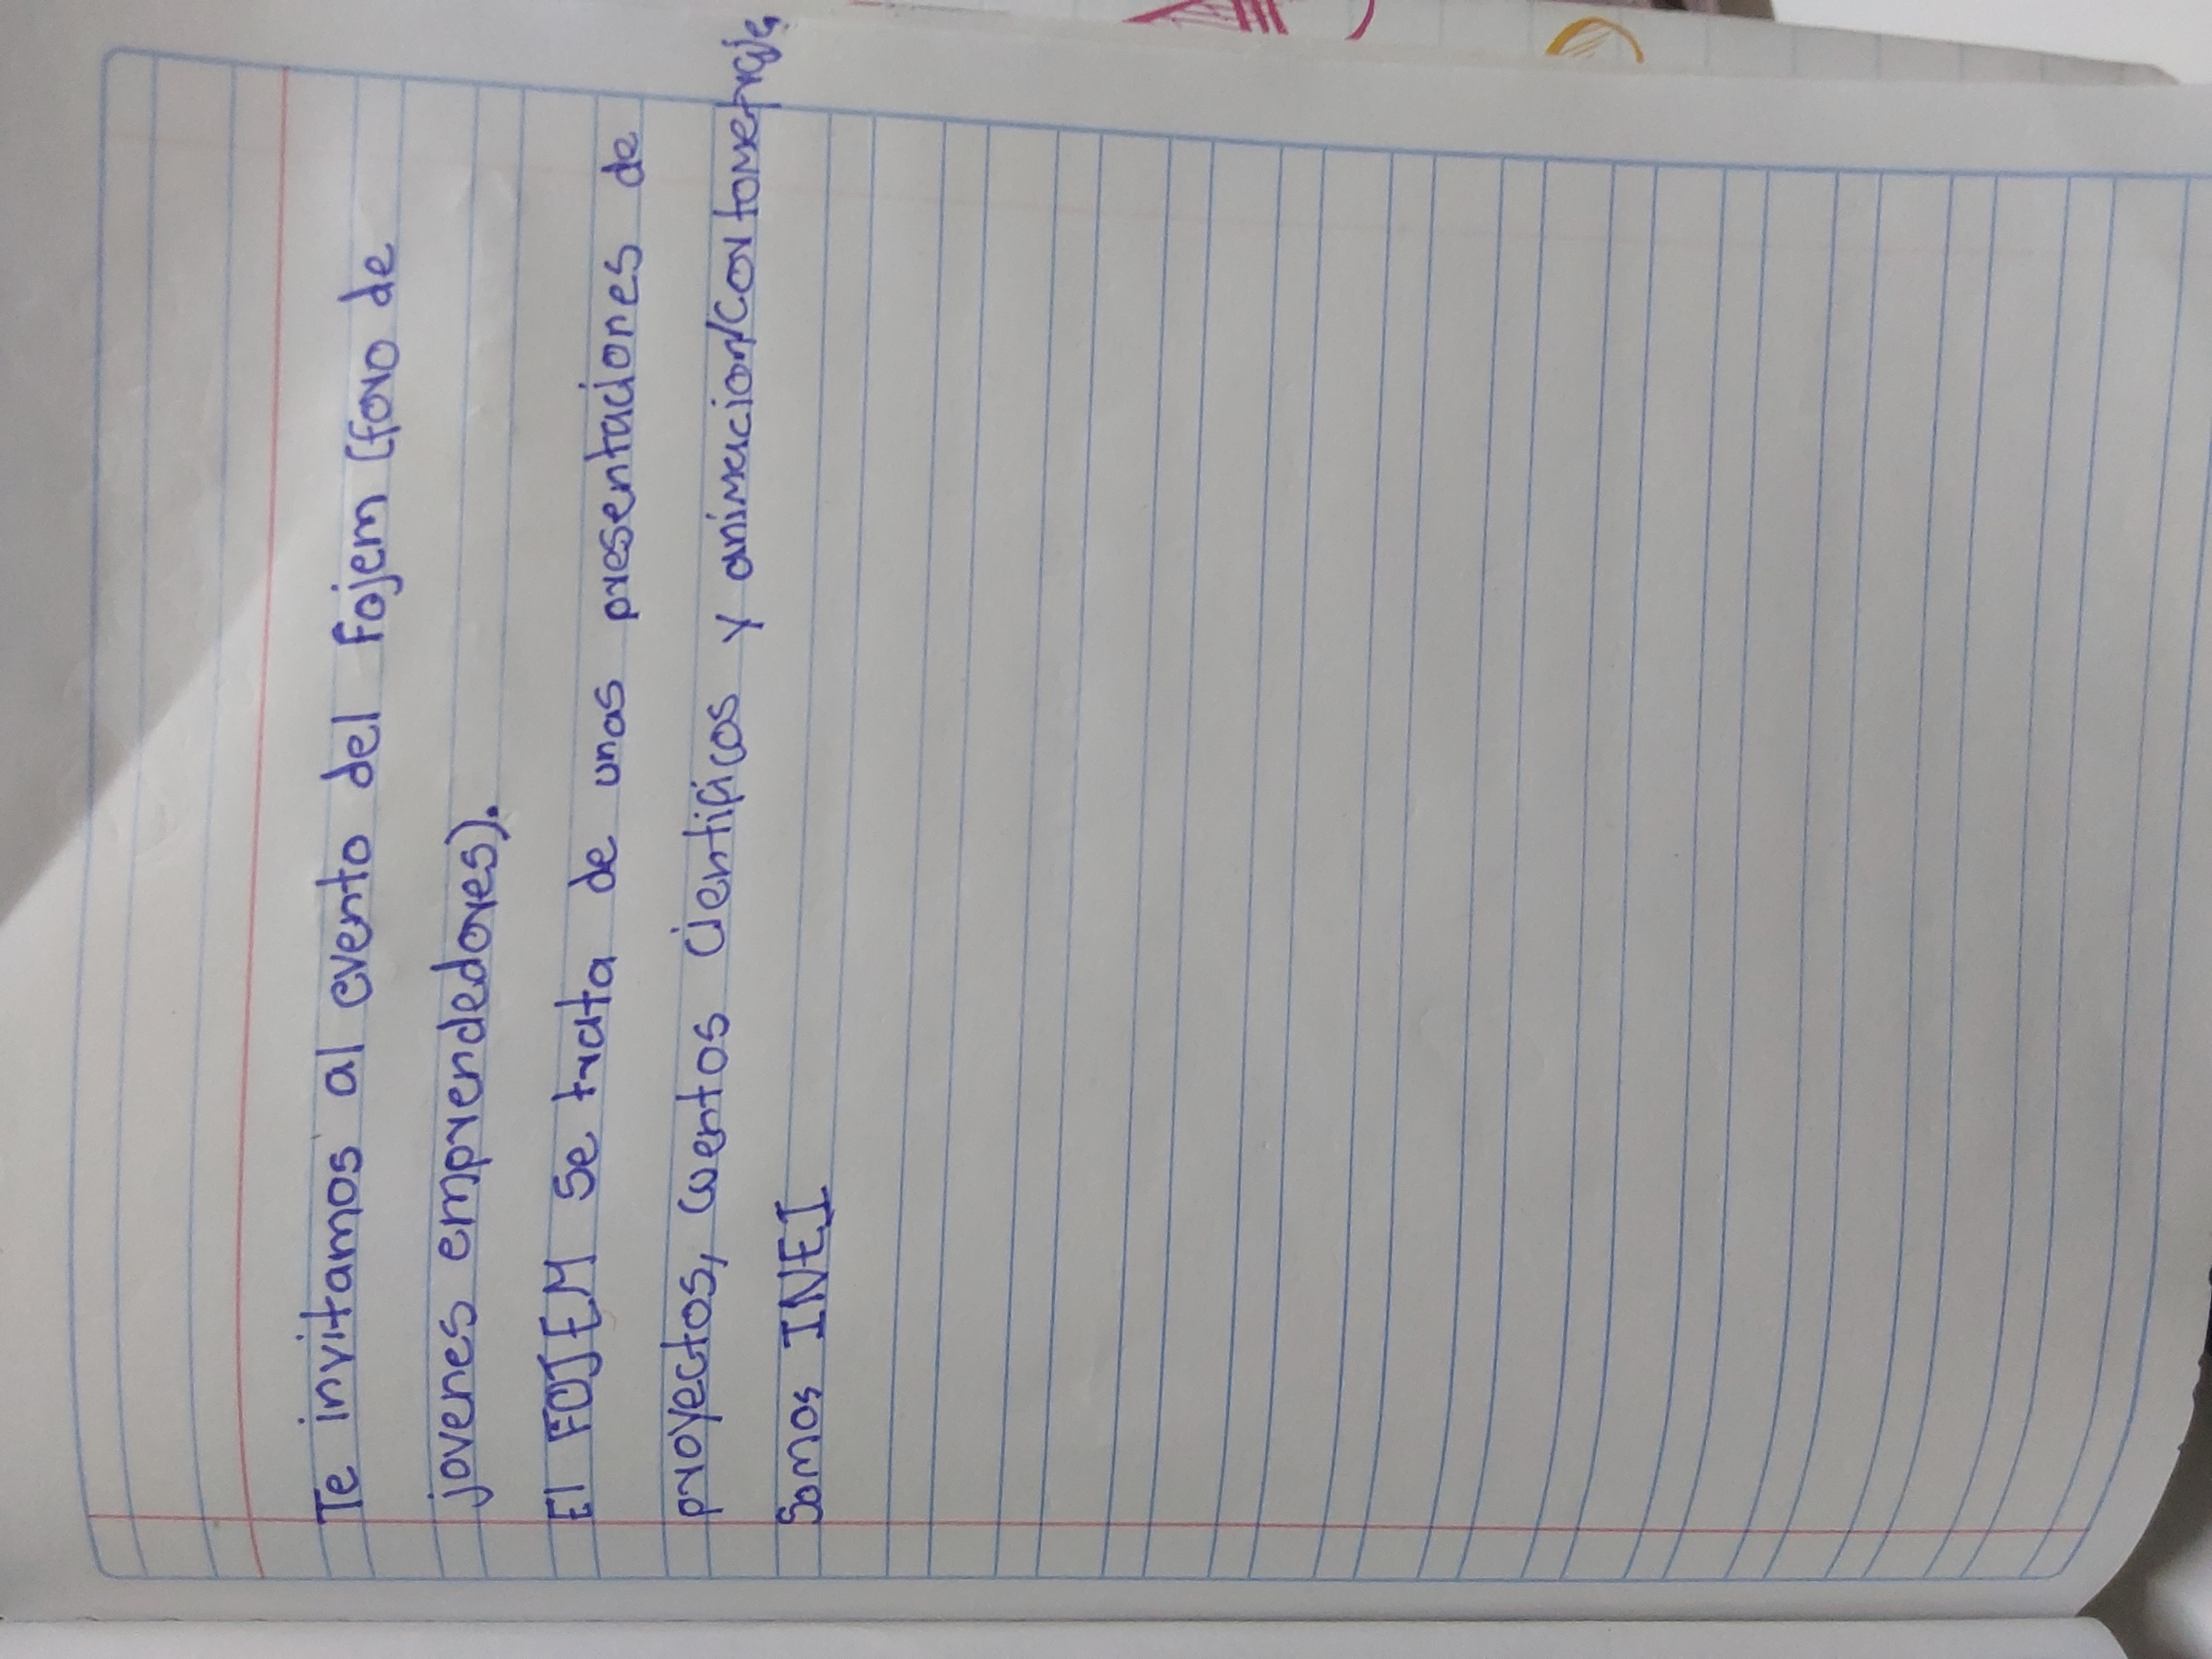 Te invitamos al evento del Fojem (foro de
jovenes emprendedores).
El FOJEM se trata de unas presentaciones de
proyectos, cuentos cientificos y animacion/Cortometraje
Somos INEI